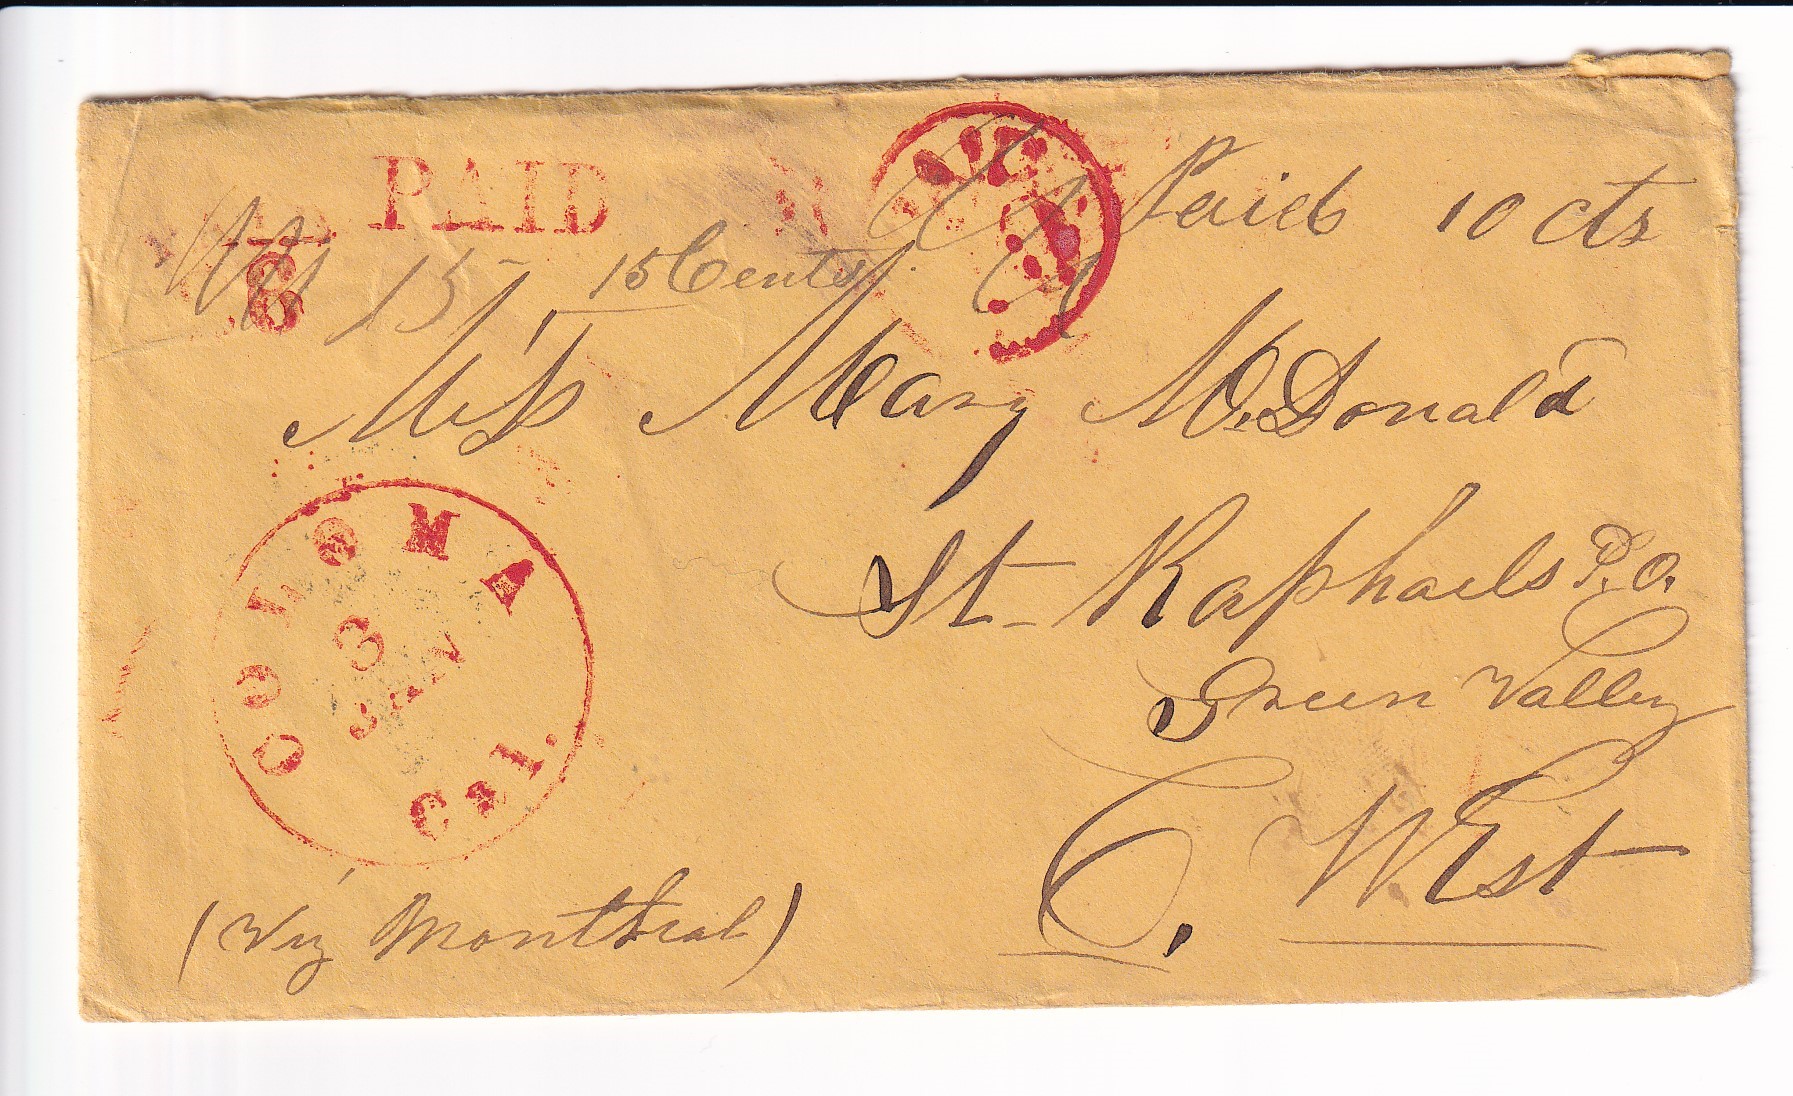 PAID
Paid 10 cts
6
15
15 Cents
Miss Mary McDonald
St. Raphaels P.O.
Green Valley
C. West
COLOMA
3
JAN
Cal.
(Viz Montreal)